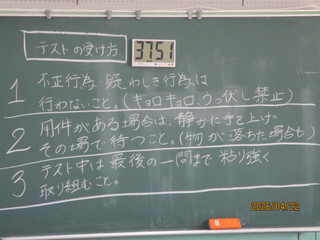 テストの受け方
3751
1 不正行為、疑わしき行為は
行わないこと。(キョロキョロ、うっ伏し禁止)
2 用件がある場合は、静かに手を上げ、
その場で待つこと。(物が落ちた場合も)
3 テスト中は最後の一問まで粘り強く
取り組むこと。
2025/04/22